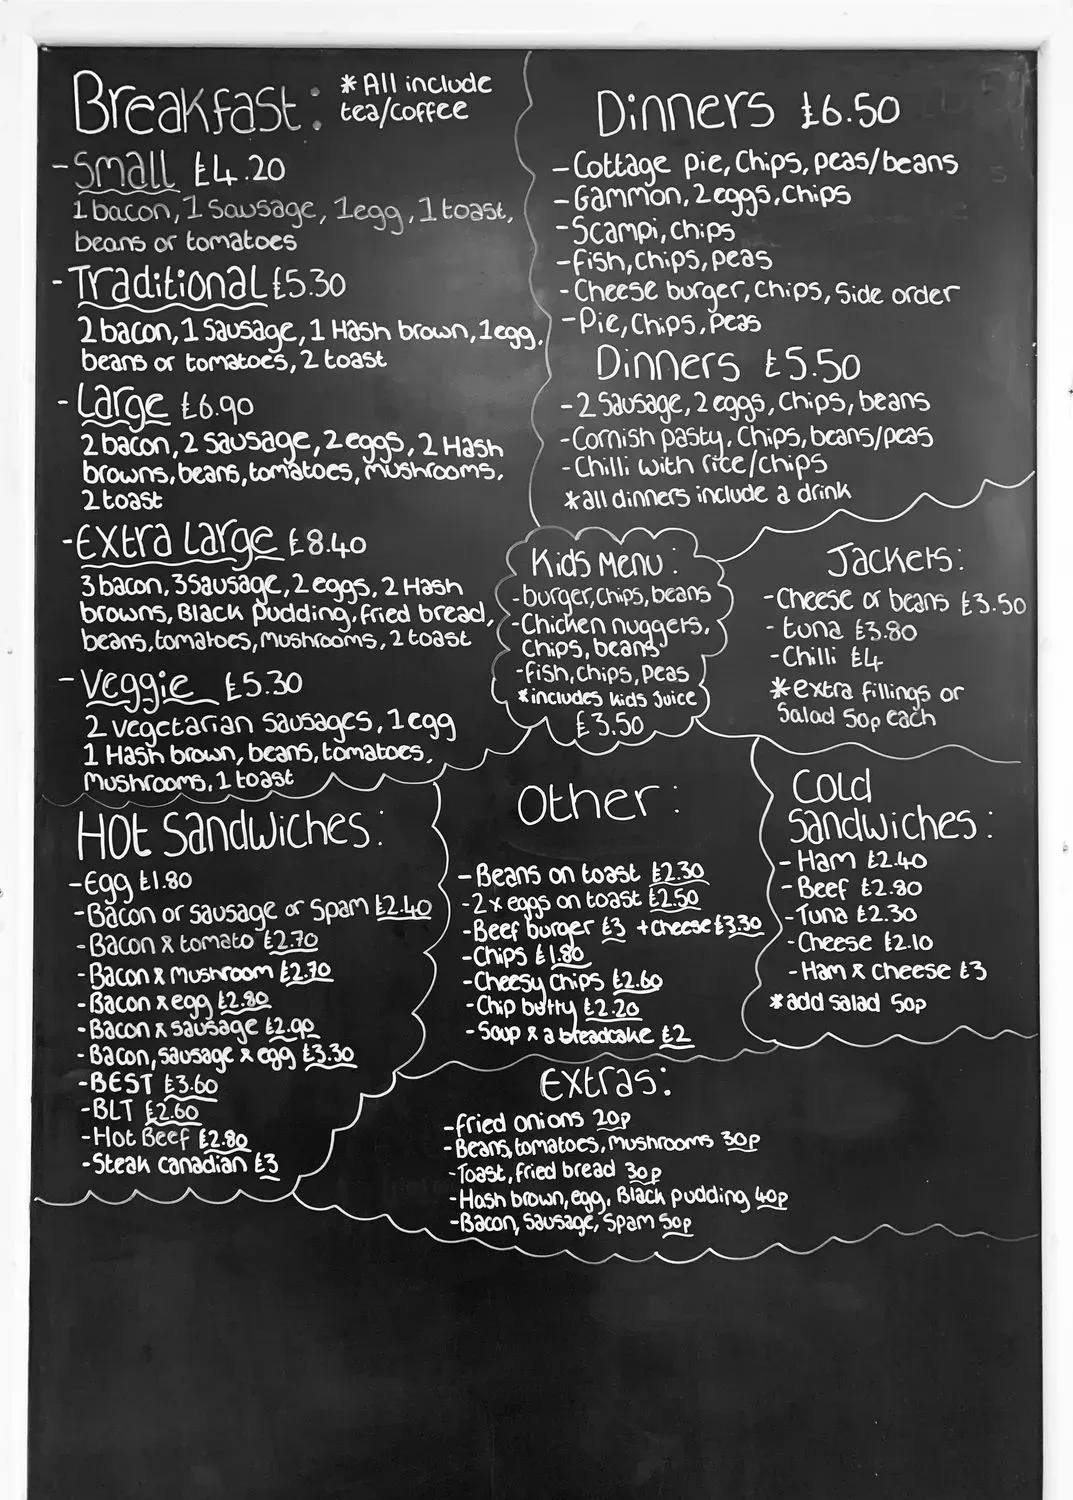 Breakfast: *All include
tea/coffee
-Small £4.20
1 bacon, 1 sausage, 1 egg, 1 toast,
beans or tomatoes
-Traditional £5.30
2 bacon, 1 sausage, 1 Hash brown, 1 egg,
beans or tomatoes, 2 toast
-Large £6.90
2 bacon, 2 sausage, 2 eggs, 2 Hash
browns, beans, tomatoes, mushrooms,
2 toast
-Extra Large £8.40
3 bacon, 3 sausage, 2 eggs, 2 Hash
browns, Black pudding, fried bread,
beans, tomatoes, mushrooms, 2 toast
-Veggie £5.30
2 vegetarian sausages, 1 egg
1 Hash brown, beans, tomatoes,
mushrooms, 1 toast
Dinners £6.50
-Cottage pie, Chips, peas/beans
-Gammon, 2 eggs, Chips
-Scampi, chips
-fish, chips, peas
-Cheese burger, chips, side order
-Pie, Chips, Peas
Dinners £5.50
-2 Sausage, 2 eggs, Chips, beans
-Cornish pasty, Chips, beans/peas
-Chilli with rice/chips
*all dinners include a drink
Kids Menu:
-burger, chips, beans
-Chicken nuggets,
Chips, beans
-fish, chips, peas
*includes kids juice
£3.50
Jackets:
-Cheese or beans £3.50
-tuna £3.80
-Chilli £4
*extra fillings or
Salad 50p each
Hot Sandwiches:
-Egg £1.80
-Bacon or sausage or spam £2.40
-Bacon & tomato £2.70
-Bacon & mushroom £2.70
-Bacon & egg £2.80
-Bacon & sausage £2.90
-Bacon, sausage & egg £3.30
-BEST £3.60
-BLT £2.60
-Hot Beef £2.80
-Steak canadian £3
Other:
-Beans on toast £2.30
-2x eggs on toast £2.50
-Beef burger £3 +cheese £3.30
-Chips £1.80
-Cheesy chips £2.60
-Chip butty £2.20
-Soup & a breadcake £2
Cold
Sandwiches:
-Ham £2.40
-Beef £2.80
-Tuna £2.30
-Cheese £2.10
-Ham & cheese £3
*add salad 50p
Extras:
-fried onions 20p
-Beans, tomatoes, mushrooms 30p
-Toast, fried bread 30p
-Hash brown, egg, Black pudding 40p
-Bacon, sausage, spam 50p